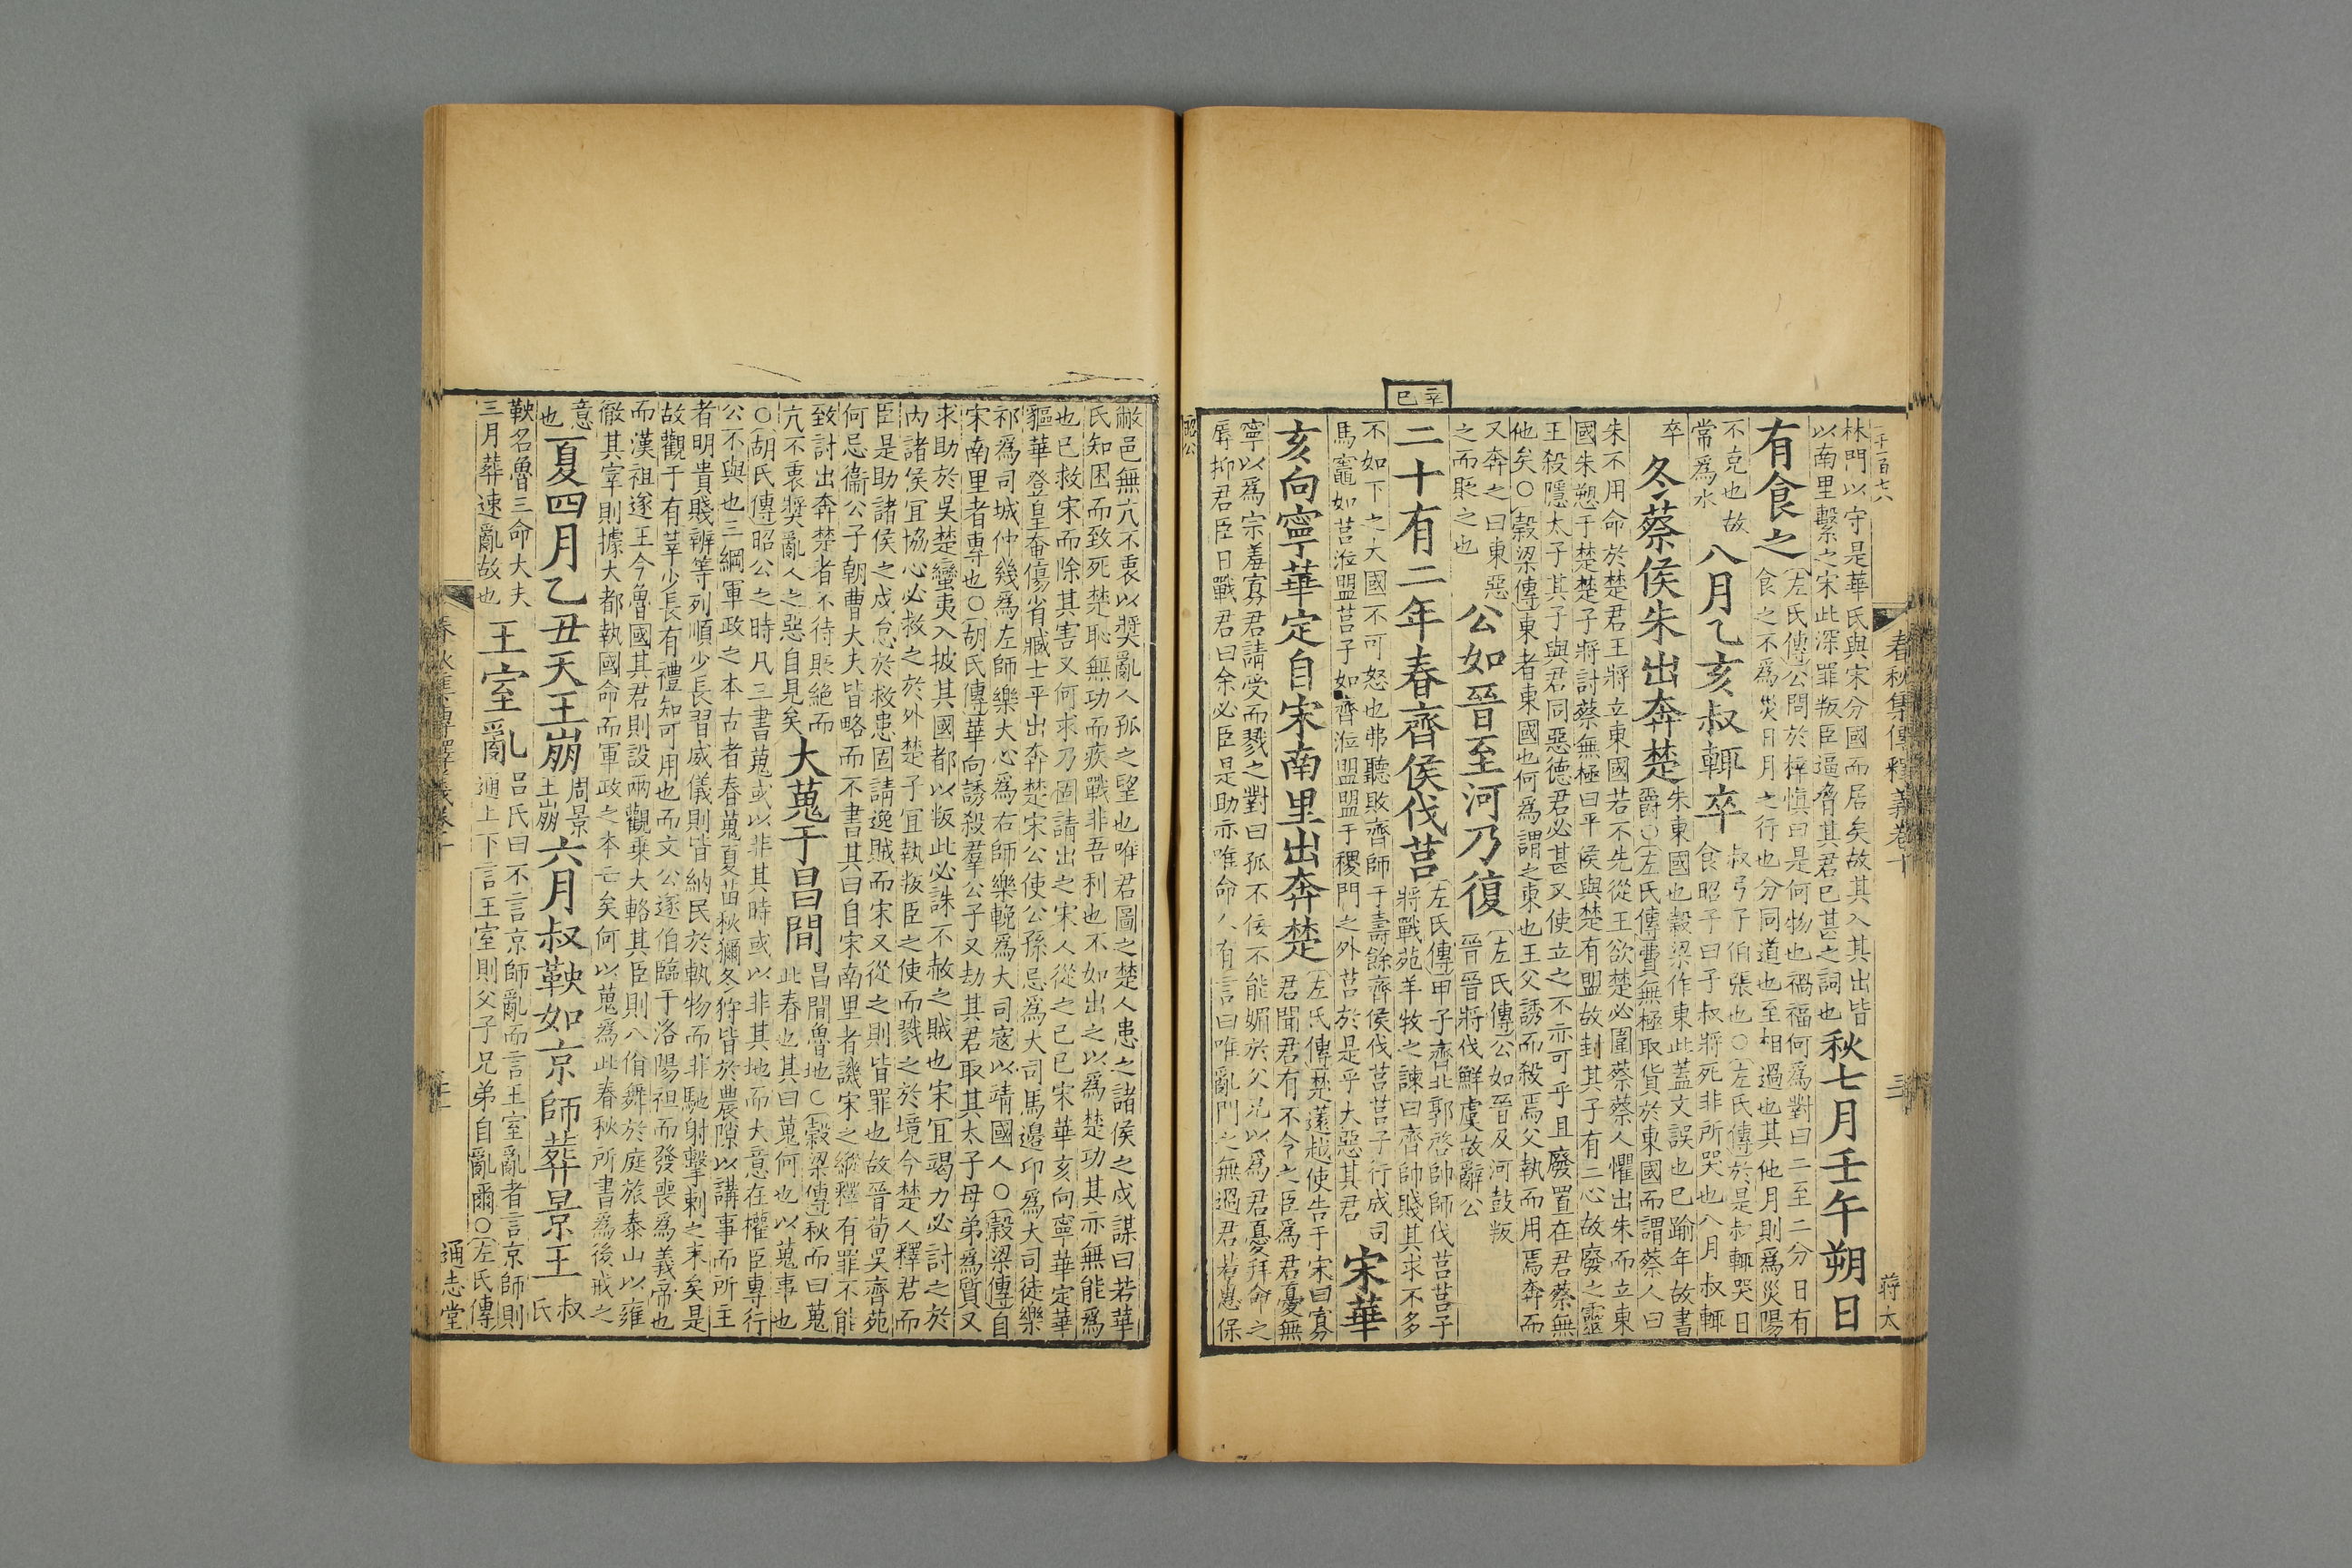 二千一百七六
春秋集傳釋義卷十
三
蔣太
林門以守是華氏與宋分國而居矣故其入其出皆
以南里繫之宋此深罪叛臣逼脅其君已甚之詞也
秋七月壬午朔日
有食之
左氏傳公問於梓慎曰是何物也禍福何爲對曰二至二分日有
食之不爲災日月之行也分同道也至相過也其他月則爲災陽
不克也故
常爲水
八月乙亥叔輒卒
叔弓子伯張也○左氏傳於是叔輒哭日
食昭子曰子叔將死非所哭也八月叔輒
卒
冬蔡侯朱出奔楚
朱東國也穀梁作東此蓋文誤也已踰年故書
爵○左氏傳費無極取貨於東國而謂蔡人曰
朱不用命於楚君王將立東國若不先從王欲楚必圍蔡蔡人懼出朱而立東
國朱愬于楚楚子將討蔡無極曰平侯與楚有盟故封其子有二心故廢之靈
王殺隱太子其子與君同惡德君必甚又使立之不亦可乎且廢置在君蔡無
他矣○穀梁傳東者東國也何爲謂之東也王父誘而殺焉父執而用焉奔而
又奔之曰東惡
之而貶之也
公如晉至河乃復
左氏傳公如晉及河鼓叛
晉晉將伐鮮虞故辭公
辛巳
二十有二年春齊侯伐莒
左氏傳甲子齊北郭啓帥師伐莒莒子
將戰苑羊牧之諫曰齊帥賤其求不多
不如下之大國不可怒也弗聽敗齊師于壽餘齊侯伐莒莒子行成司
馬竈如莒涖盟莒子如齊涖盟盟于稷門之外莒於是乎大惡其君
宋華
亥向寧華定自宋南里出奔楚
左氏傳楚薳越使告于宋曰寡
君聞君有不令之臣爲君憂無
寧以爲宗羞寡君請受而戮之對曰孤不佞不能媚於父兄以爲君憂拜命之
辱抑君臣日戰君曰余必臣是助亦唯命人有言曰唯亂門之無過君若惠保
昭公
敝邑無亢不衷以奬亂人孤之望也唯君圖之楚人患之諸侯之戍謀曰若華
氏知困而致死楚恥無功而疾戰非吾利也不如出之以爲楚功其亦無能爲
也已救宋而除其害又何求乃固請出之宋人從之己巳宋華亥向寧華定華
貙華登皇奄傷省臧士平出奔楚宋公使公孫忌爲大司馬邊卬爲大司徒樂
祁爲司城仲幾爲左師樂大心爲右師樂輓爲大司寇以靖國人○穀梁傳自
宋南里者專也○胡氏傳華向誘殺羣公子又劫其君取其太子母弟爲質又
求助於吳楚蠻夷入披其國都以叛此必誅不赦之賊也宋宜竭力必討之於
內諸侯宜協心必救之於外楚子宜執叛臣之使而戮之於境今楚人釋君而
臣是助諸侯之戍怠於救患固請逸賊而宋又從之則皆罪也故晉荀吳齊苑
何忌衞公子朝曹大夫皆略而不書其曰自宋南里者譏宋之縱釋有罪不能
致討出奔楚者不待貶絶而
亢不衷奬亂人之惡自見矣
大蒐于昌間
昌間魯地○穀梁傳秋而曰蒐
此春也其曰蒐何也以蒐事也
○胡氏傳昭公之時凡三書蒐或以非其時或以非其地而大意在權臣專行
公不與也三綱軍政之本古者春蒐夏苗秋獮冬狩皆於農隙以講事而所主
者明貴賤辨等列順少長習威儀則皆納民於軌物而非馳射擊刺之末矣是
故觀于有莘少長有禮知可用也而文公遂伯臨于洛陽袒而發喪爲義帝也
而漢祖遂王今魯國其君則設兩觀乗大輅其臣則八佾舞於庭旅泰山以雍
徹其宰則據大都執國命而軍政之本亡矣何以蒐爲此春秋所書爲後戒之
意
也
夏四月乙丑天王崩
周景
王崩
六月叔鞅如京師葬景王
叔
氏
鞅名魯三命大夫
三月葬速亂故也
王室亂
呂氏曰不言京師亂而言王室亂者言京師則
通上下言王室則父子兄弟自亂爾○左氏傳
通志堂